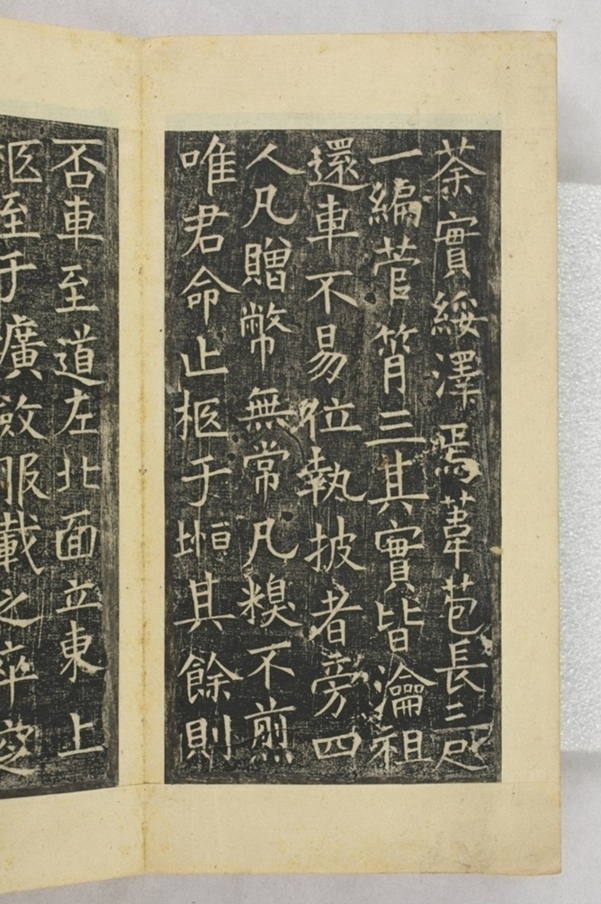 荼實綏澤焉葦苞長三尺
一編菅筲三其實皆瀹祖
還車不易位執披者旁四
人凡贈幣無常凡糗不煎
唯君命止柩于堩其餘則
否車至道左北面立東上
柩至于壙斂服載之卒窆